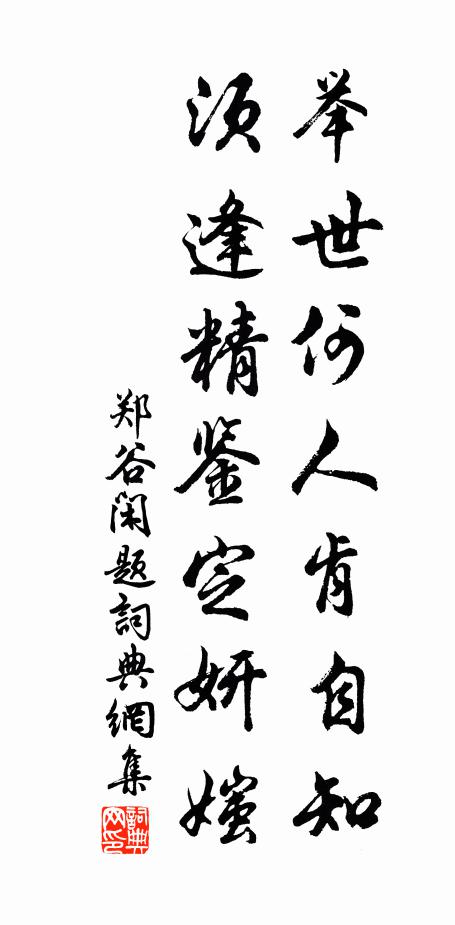 举世何人肯自知
须逢精鉴定妍媸
郑谷闲题詞典網集
詞典网印